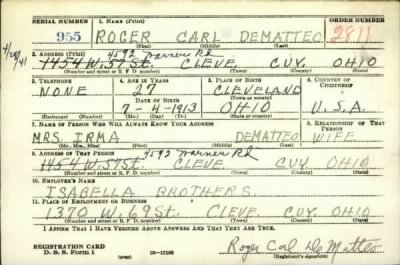 SERIAL NUMBER 1. NAME (Print) ORDER NUMBER
955 ROGER CARL DEMATTEO 2811
(First) (Middle) (Last)
4/28/41
2. ADDRESS (Print) 4592 Warner Rd
1454 W. 57 St. CLEVE. CUY. OHIO
(Number and street or R. F. D. number) (Town) (County) (State)
3. TELEPHONE 4. AGE IN YEARS 5. PLACE OF BIRTH 6. COUNTRY OF CITIZENSHIP
NONE 27 CLEVELAND
DATE OF BIRTH (Town or county)
7 4 1913 OHIO U.S.A.
(Exchange) (Number) (Mo.) (Day) (Yr.) (State or country)
7. NAME OF PERSON WHO WILL ALWAYS KNOW YOUR ADDRESS 8. RELATIONSHIP OF THAT PERSON
MRS. IRMA DEMATTEO WIFE
(Mr., Mrs., Miss) (First) (Middle) (Last)
9. ADDRESS OF THAT PERSON 4592 Warner Rd.
1454 W. 57 St. CLEVE. CUY OHIO
(Number and street or R. F. D. number) (Town) (County) (State)
10. EMPLOYER'S NAME
ISABELLA BROTHERS
11. PLACE OF EMPLOYMENT OR BUSINESS
1370 W. 69 St. CLEVE. CUY. OHIO
(Number and street or R. F. D. number) (Town) (County) (State)
I AFFIRM THAT I HAVE VERIFIED ABOVE ANSWERS AND THAT THEY ARE TRUE.
REGISTRATION CARD
D. S. S. Form 1 16-17105
Roger Carl De Matteo
(Registrant's signature)